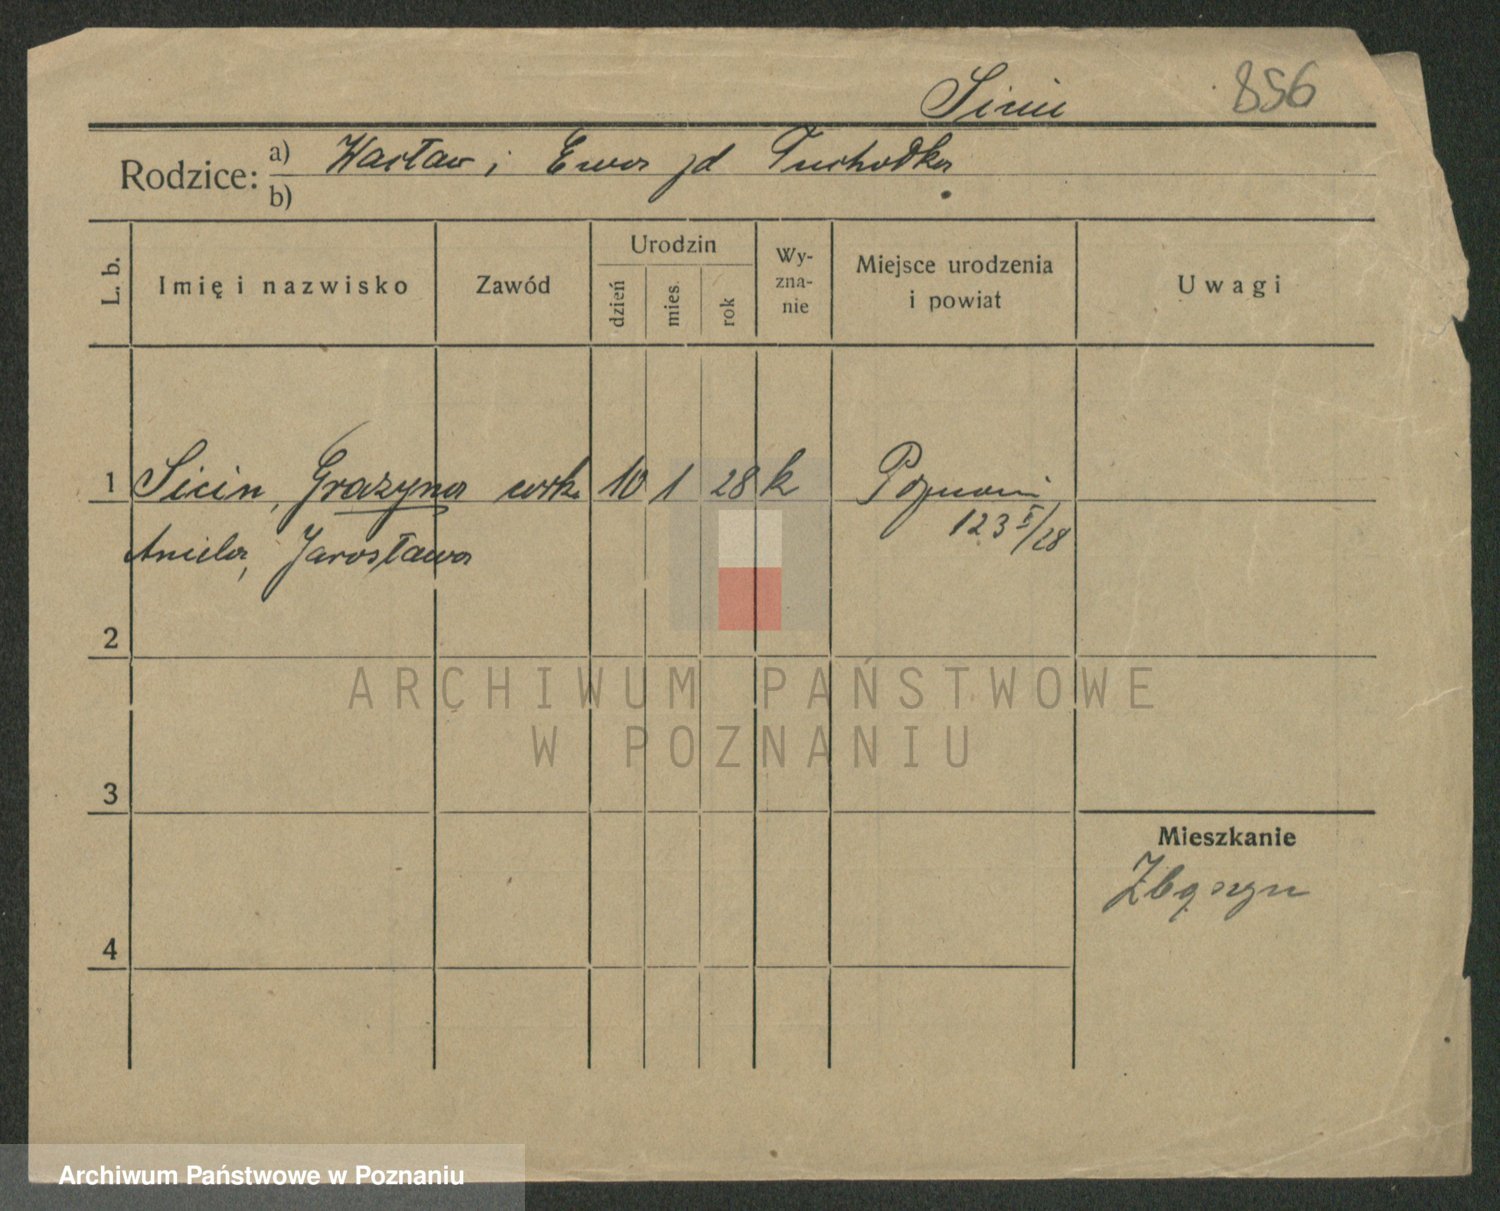 Sicin 856
Rodzice: a) Wacław i Ewa zd Tuchodka
b)
L. b. Imię i nazwisko Zawód Urodzin dzień mies. rok Wy-zna-nie Miejsce urodzenia i powiat Uwagi
1 Sicin, Grażyna córka 10 1 28 k Poznań
Aniela, Jarosława 123 II/28
2
ARCHIWUM PAŃSTWOWE
W POZNANIU
3
Mieszkanie
Zbąszyn
4
Archiwum Państwowe w Poznaniu